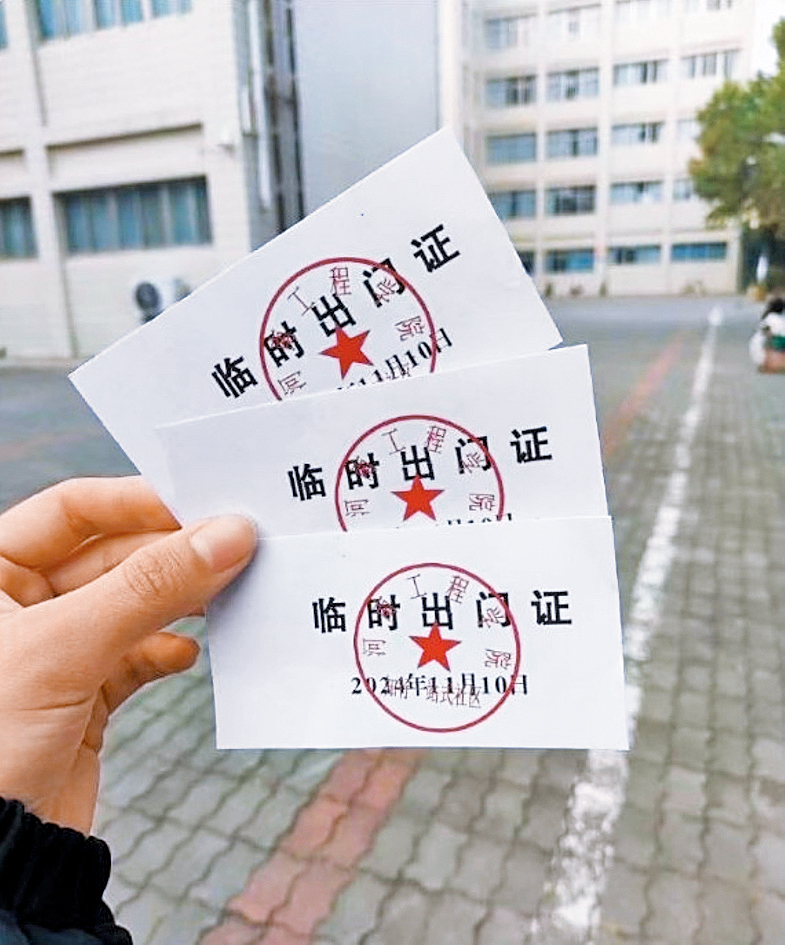 临时出门证
河南工程学院
11月10日
临时出门证
河南工程学院
临时出门证
河南工程学院
2024年11月10日
一站式社区